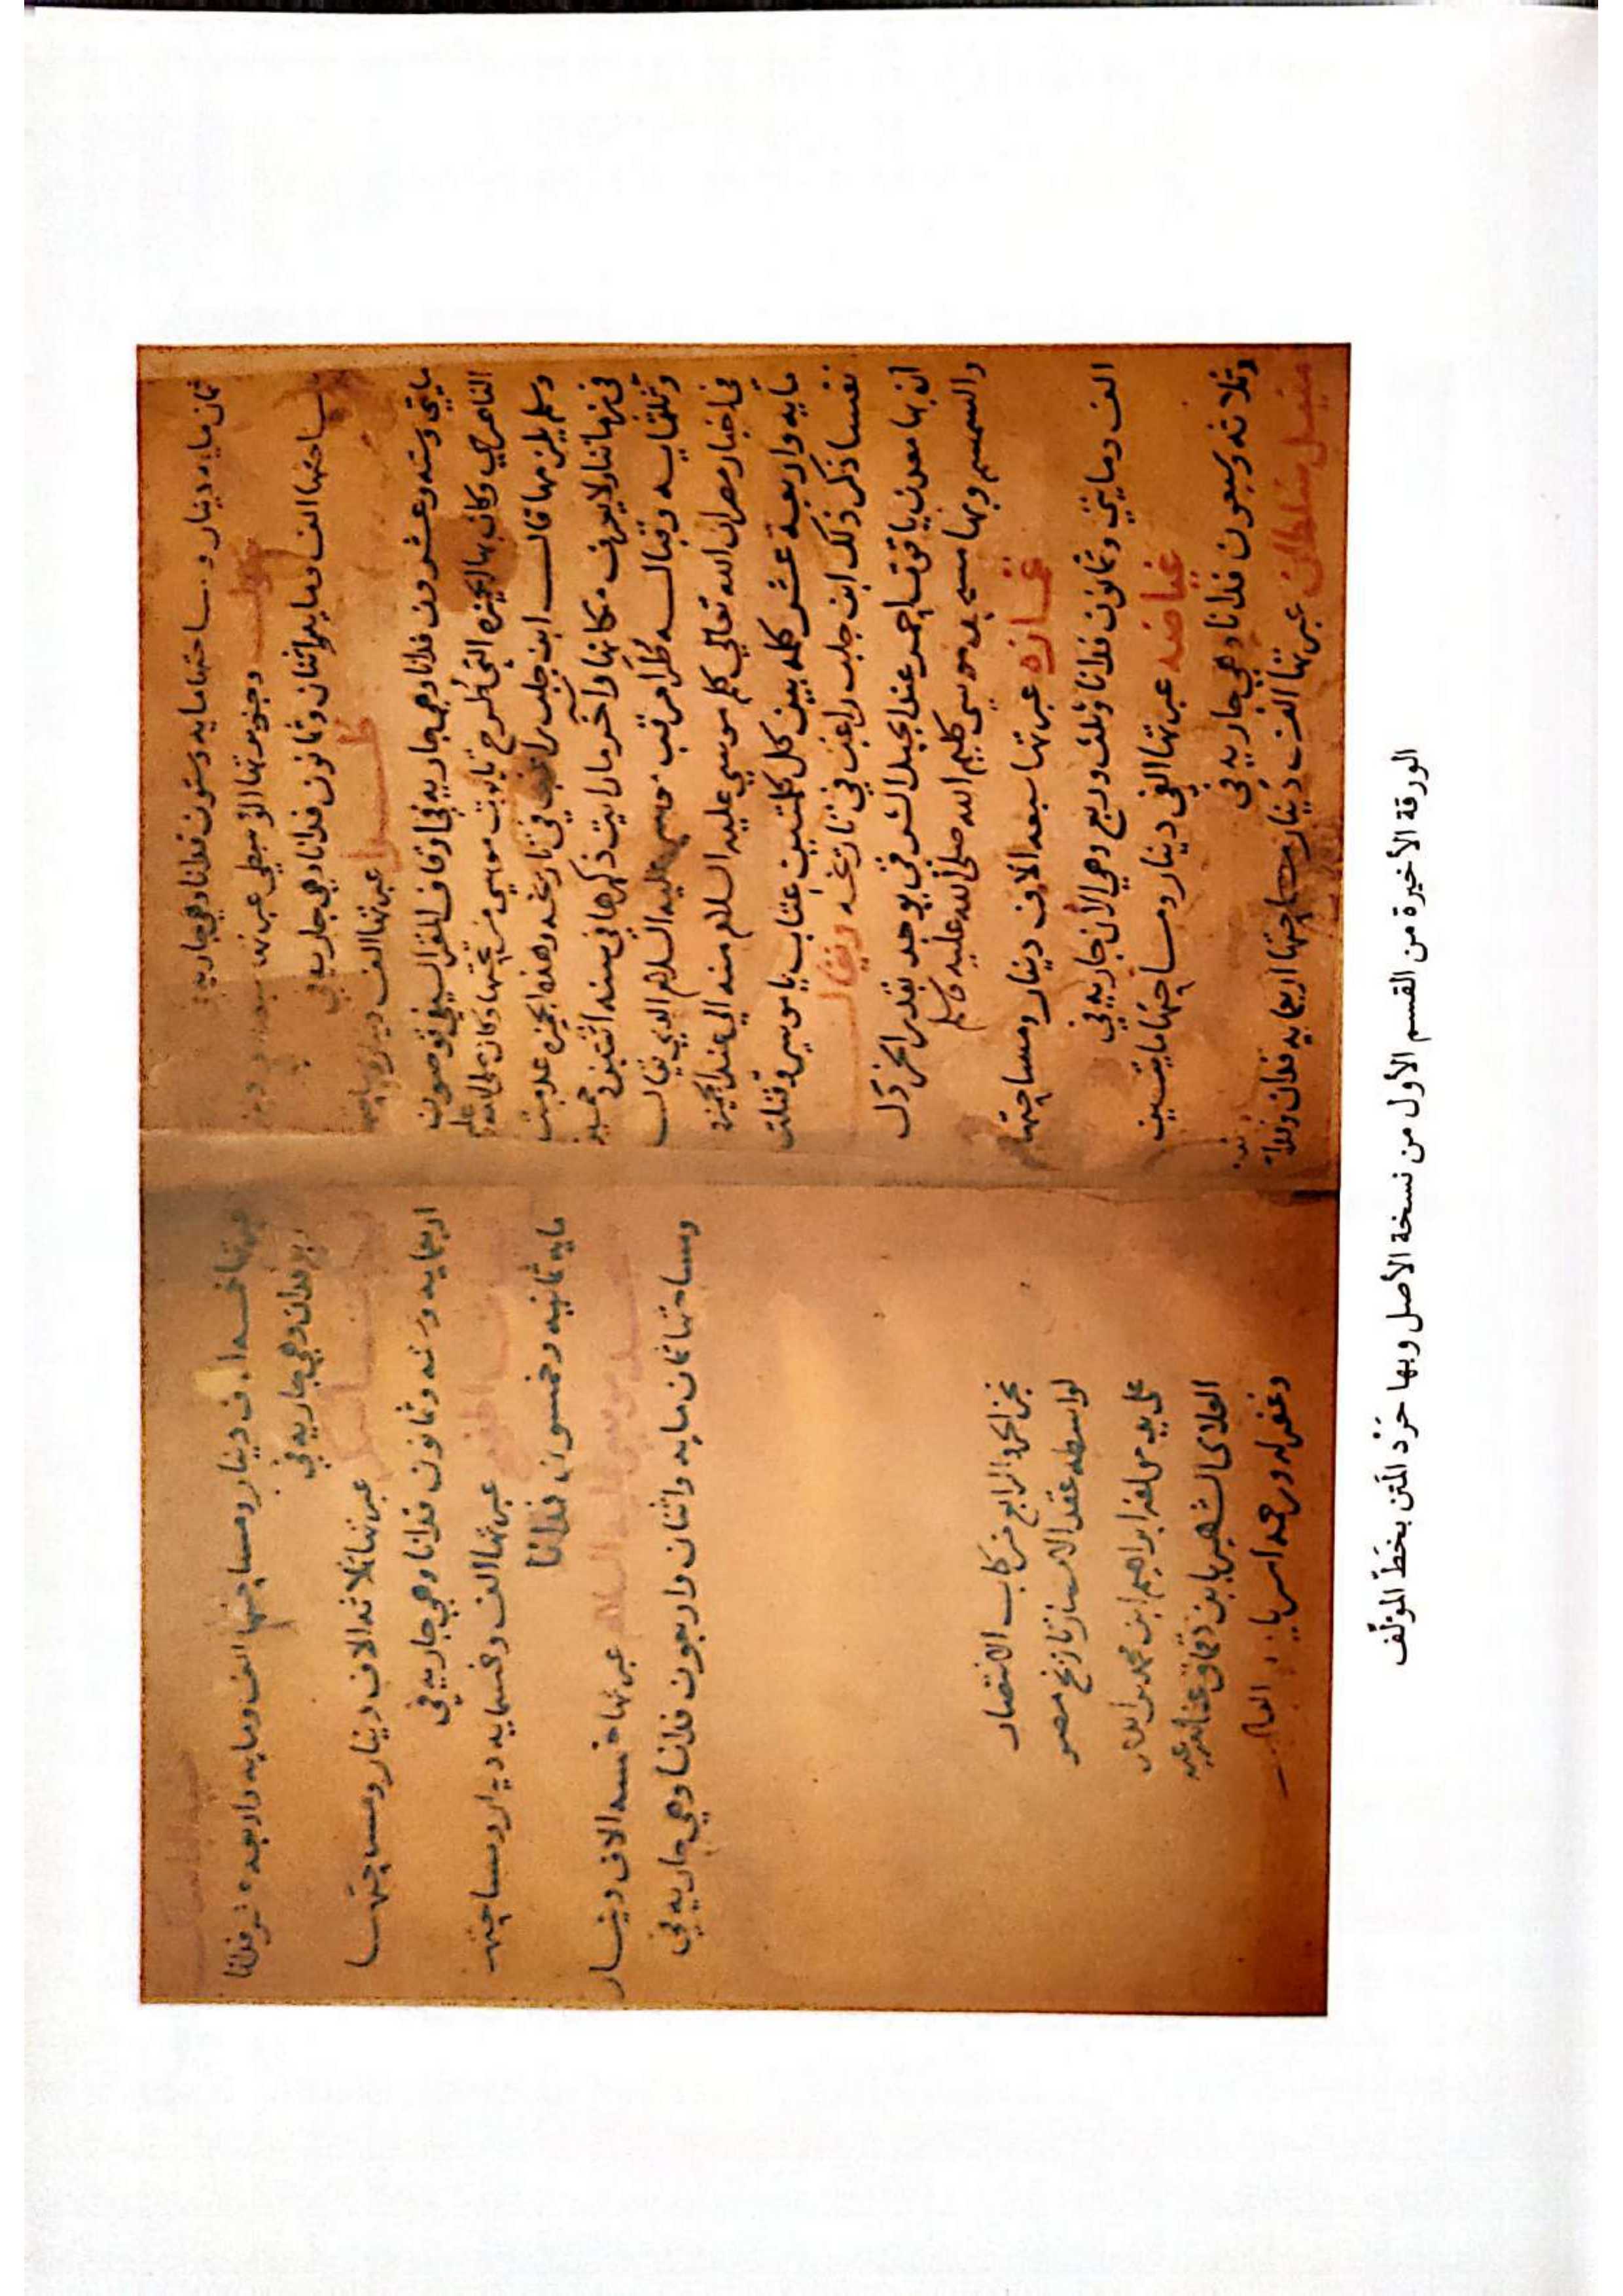 ثمان مايه دينار و مساحتها مايه وستون فدانا وهي جاريه في
وجزيرتها الاوسطي عبرتها دينار
مساحتها الف ومايه واثنان وثمانون فدانا وهي جاريه في
عبرتها الف دينار
مايتي وسته وعشرون فدانا وهي جاريه في اوقاف المقر السيفي قوصون
الناصري وكان بها الجميزه التي طرح تابوت موسي من تحتها وكان
وسلم يلزمها قال ابن جلب راغب في تاريخه وهذه الجميزه عدمت
في زماننا ولا يعرف مكانها وآخر ما رايت ذكرها في سنه اثنتين وخمسين
وثلثمايه وقبالـه طرا مرقب موسي عليه السلام الذي يقال
في اخبار مصر ان الله تعالي كلم موسي عليه السلام منه الي عند الجميزه
مايه واربعة عشر كلمه بين كل كلمتين عتاب يا موسي وقتلت
نفسا ذكر ذلك ابن جلب راغب في تاريخه ويقال
ان بها معدن ياقوت احمر عند الجبل الشرقي يوجد بقدر الخردل
والسمسم وبها مسجد موسي كليم الله صلي الله عليه وسلم
غمازه عبرتها سبعه الاف دينار ومساحتها
الف ومايتي وثمانون فدانا وثلث وربع وهي الان جاريه في
غياضه عبرتها الفي دينار ومساحتها مايتين
وثلاثه وسبعون فدانا وهي جاريه في
منيل سلطان عبرتها الف دينار مساحتها اربعمايه فدان وثلاثه
عبرتها خمسه الاف دينار ومساحتها الف ومايه واربعه عشر فدانا
وربع فدان وهي جاريه في
عبرتها ثلاثه الاف دينار ومساحتها
اربعمايه وسته وثمانون فدانا وهي جاريه في
عبرتها الف وخمسمايه دينار ومساحتها
مايه ثمانيه وخمسون فدانا
موسي عليه السلام عبرتها خمسه الاف دينار
ومساحتها ثمان مايه واثنان واربعون فدانا وهي جاريه في
نجز الجزء الرابع من كتاب الانتصار
لواسطه عقد الامصار تاريخ مصر
علي يد مولفه ابراهيم ابن محمد بن ايدمر
العلائي الشهير بابن دقماق عفا الله عنه
وغفر له ورحمه امين يا رب العالمين
الورقة الأخيرة من القسم الأول من نسخة الأصل وبها حَرْد المَتن بخَطّ المؤلِّف